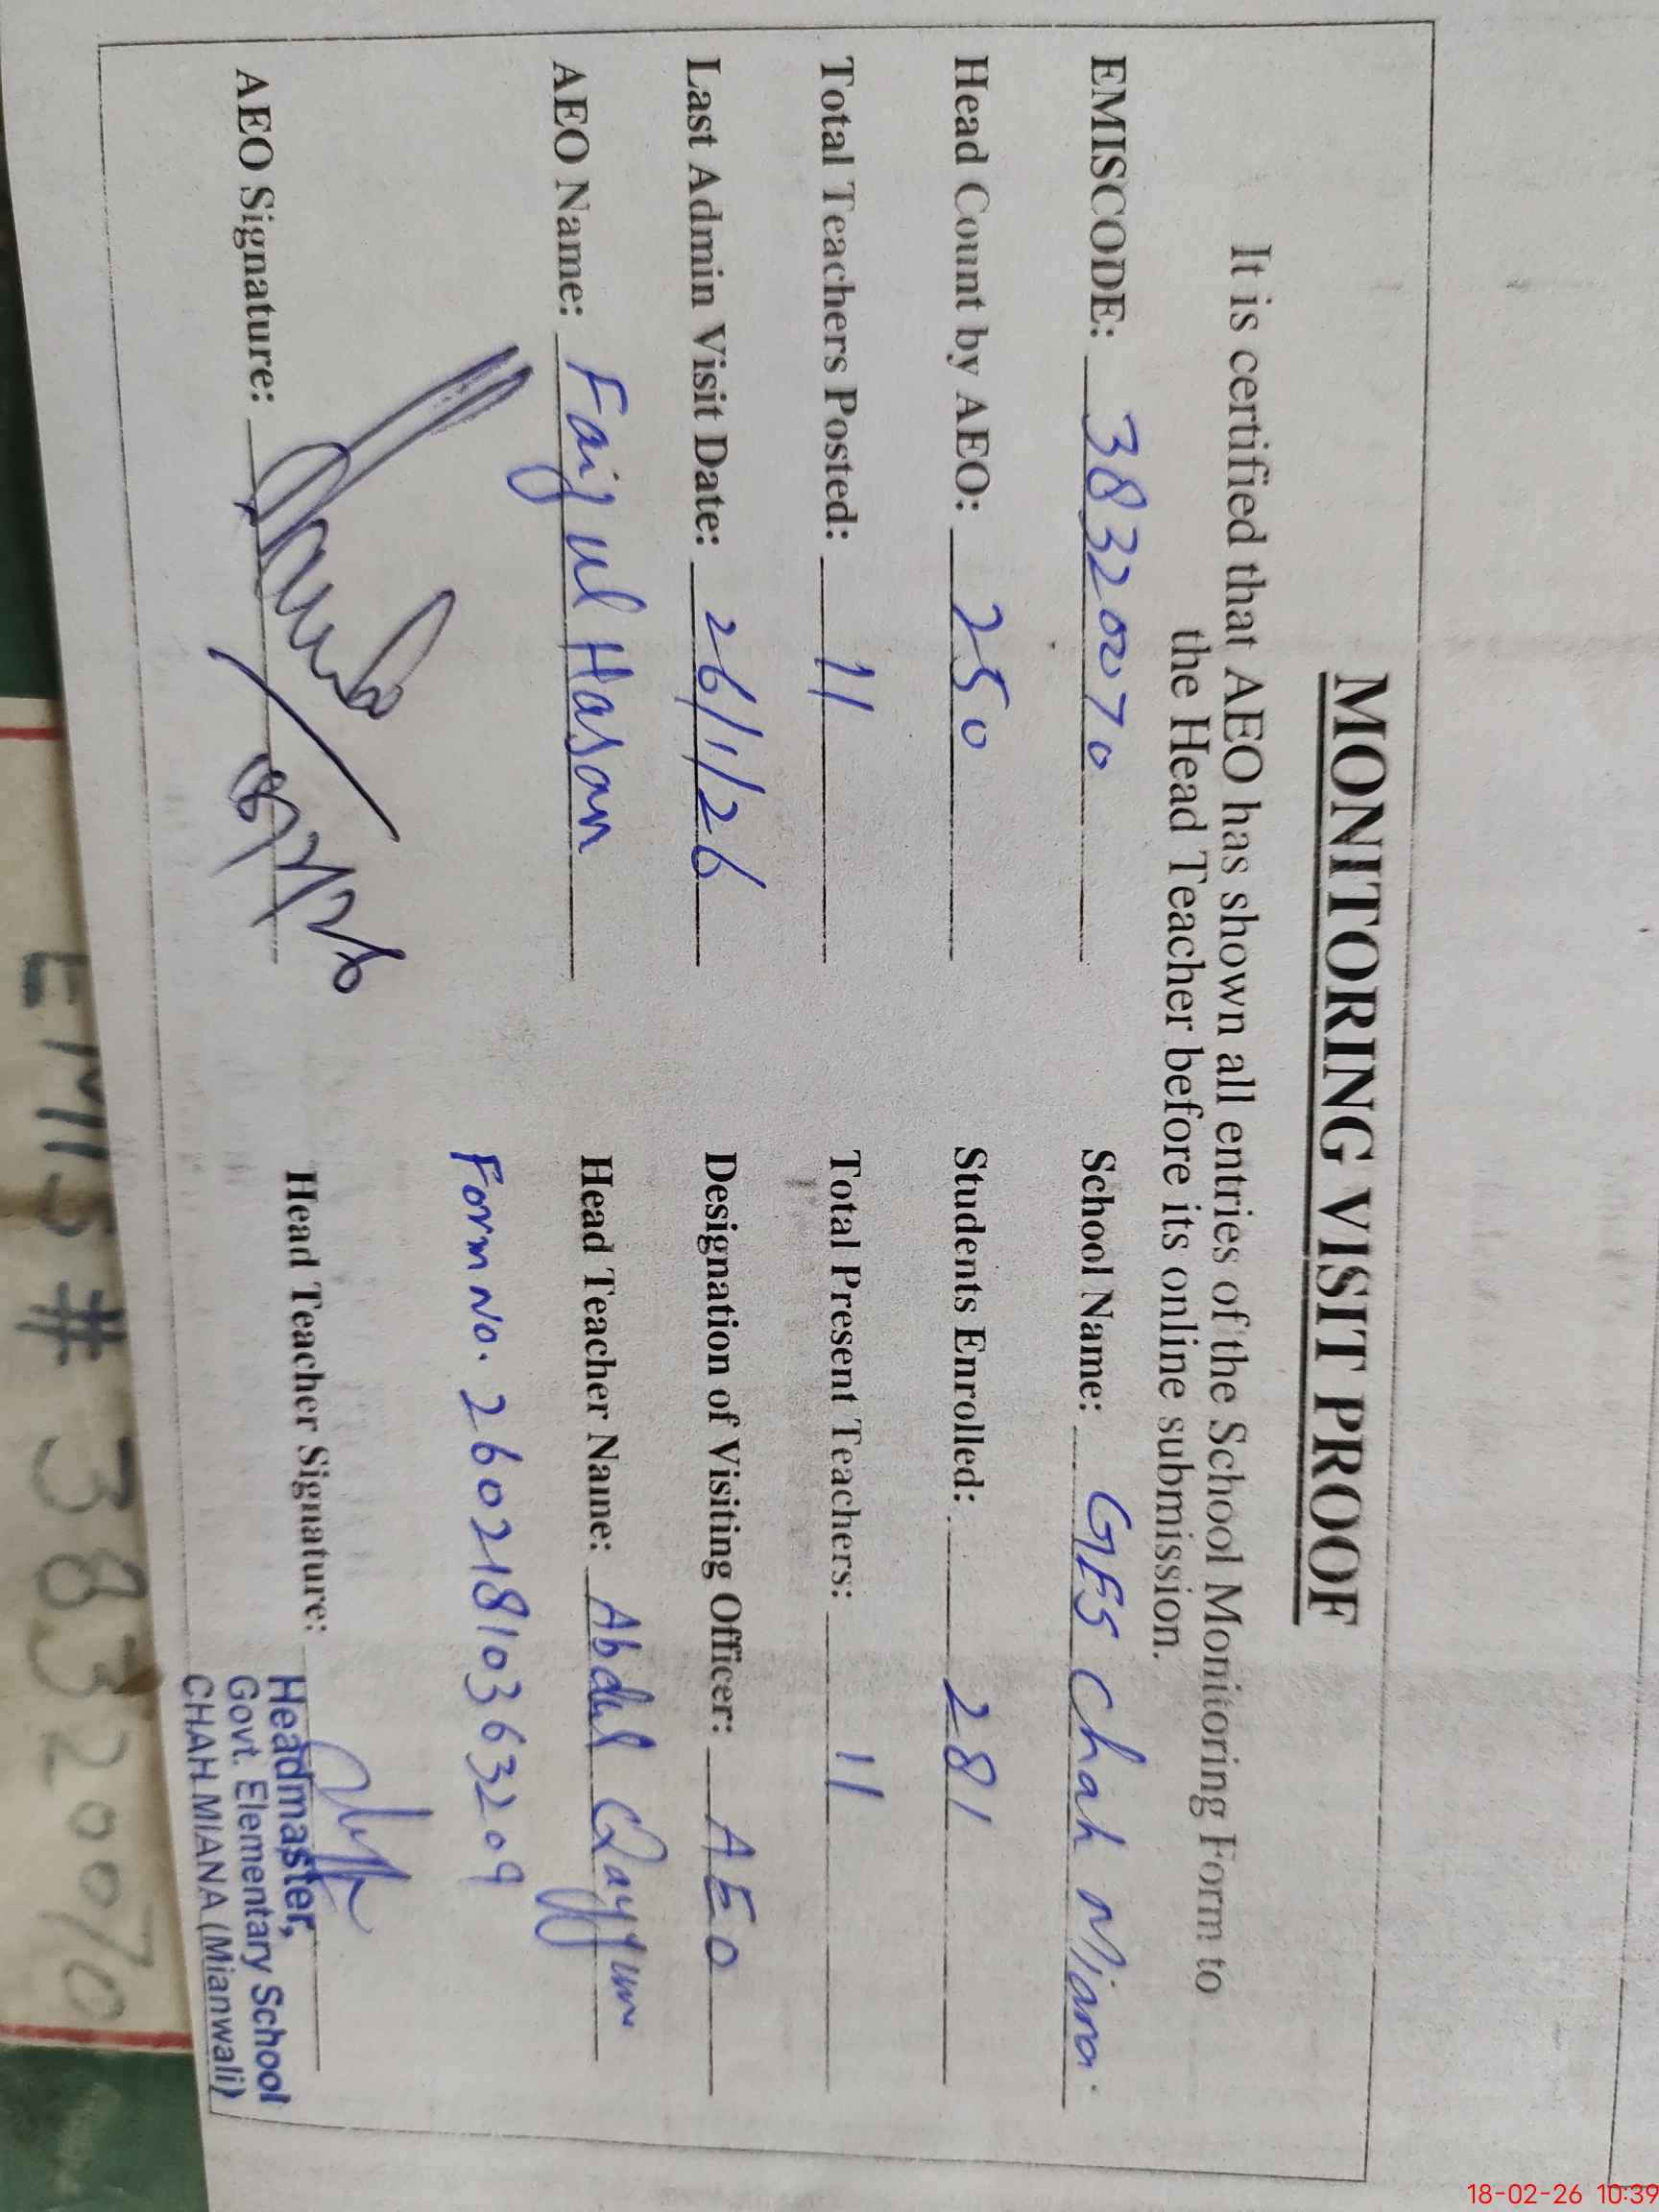 MONITORING VISIT PROOF
It is certified that AEO has shown all entries of the School Monitoring Form to
the Head Teacher before its online submission.
EMISCODE: 38320070 School Name: GES Chah Miana.
Head Count by AEO: 250 Students Enrolled: 281
Total Teachers Posted: 11 Total Present Teachers: 11
Last Admin Visit Date: 26/1/26 Designation of Visiting Officer: AEO
AEO Name: Faiz ul Hasan Head Teacher Name: Abdul Qayyum
Form No. 26021810363209
AEO Signature: Head Teacher Signature:
Headmaster,
Govt. Elementary School
CHAH MIANA (Mianwali)
EMIS # 38320070
18-02-26 10:39